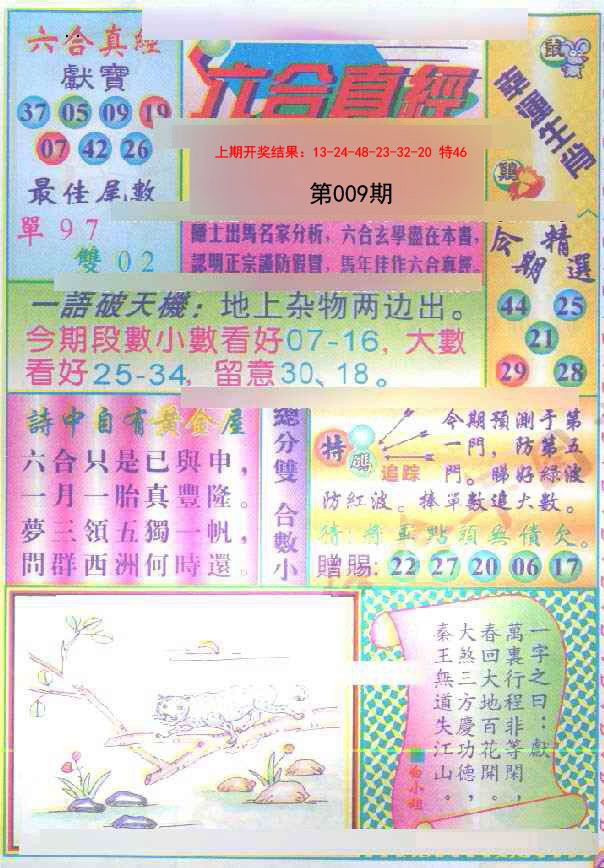 六合真經
獻寶
37 05 09 19
07 42 26
最佳尾數
單 9 7
雙 0 2
六合真經
上期开奖结果：13-24-48-23-32-20 特46
第009期
師士出馬名家分析，六合玄學盡在本書，
認明正宗謹防假冒，馬年佳作六合真經。
鼠
鷄
今期
精選
44 25
21
29 28
一語破天機：地上杂物两边出。
今期段數小數看好07-16，大數
看好25-34，留意30、18。
詩中自有黃金屋
六合只是已與申，
一月一胎真豐隆。
夢三領五獨一帆，
問群西洲何時還。
總分雙 合數小
特
碼
追踪
今期預測于第
一門，防第五
門。睇好綠波
防紅波。捧單數追大數。
猜：將五點頭無債欠。
贈賜：22 27 20 06 17
一字之曰：獻
萬裏行程非等閑，
春回大地百花開。
大煞三方慶功德，
秦王無道失江山。
白小姐